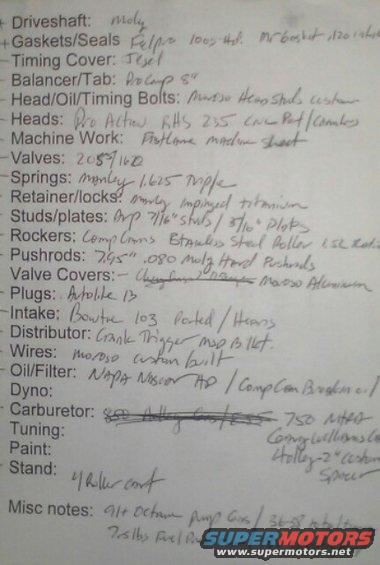 + Driveshaft: Moly
+ Gaskets/Seals Felpro 1003-Hd. Mr Gasket .120 intake
- Timing Cover: Jesel
- Balancer/Tab: ProComp 8"
- Head/Oil/Timing Bolts: Moroso Head Studs custom
- Heads: Pro Action RHS 235 CNC Port/Chambers
- Machine Work: Machine
- Valves: 205/160
- Springs: Manley 1.625 Triple
- Retainer/locks: Manly titanium
- Studs/plates: Arp 7/16" studs / 5/16" Plates
- Rockers: Comp Cams Stainless Steel Roller
- Pushrods: 7.95" .080 Moly Hard Pushrods
Valve Covers: - Moroso Aluminum
- Plugs: Autolite 13
- Intake: Bowtie 103 Ported /
Distributor: Crank Trigger MSD Billet.
Wires: moroso custom built
- Oil/Filter: NAPA / Comp Cam Breakin oil /
Dyno:
Carburetor: 750 NHRA
Tuning:
Paint: Holley-2" custom
Stand: Spacer
4 Roller cart
Misc notes: 91+ Octane pump Gas / 36-38
7.5lbs Fuel
SUPERMOTORS
www.supermotors.net